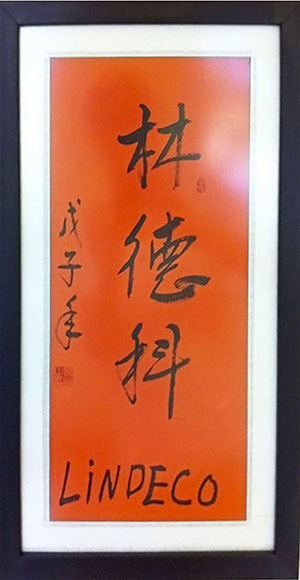 林德科
戊子年
LiNDECO